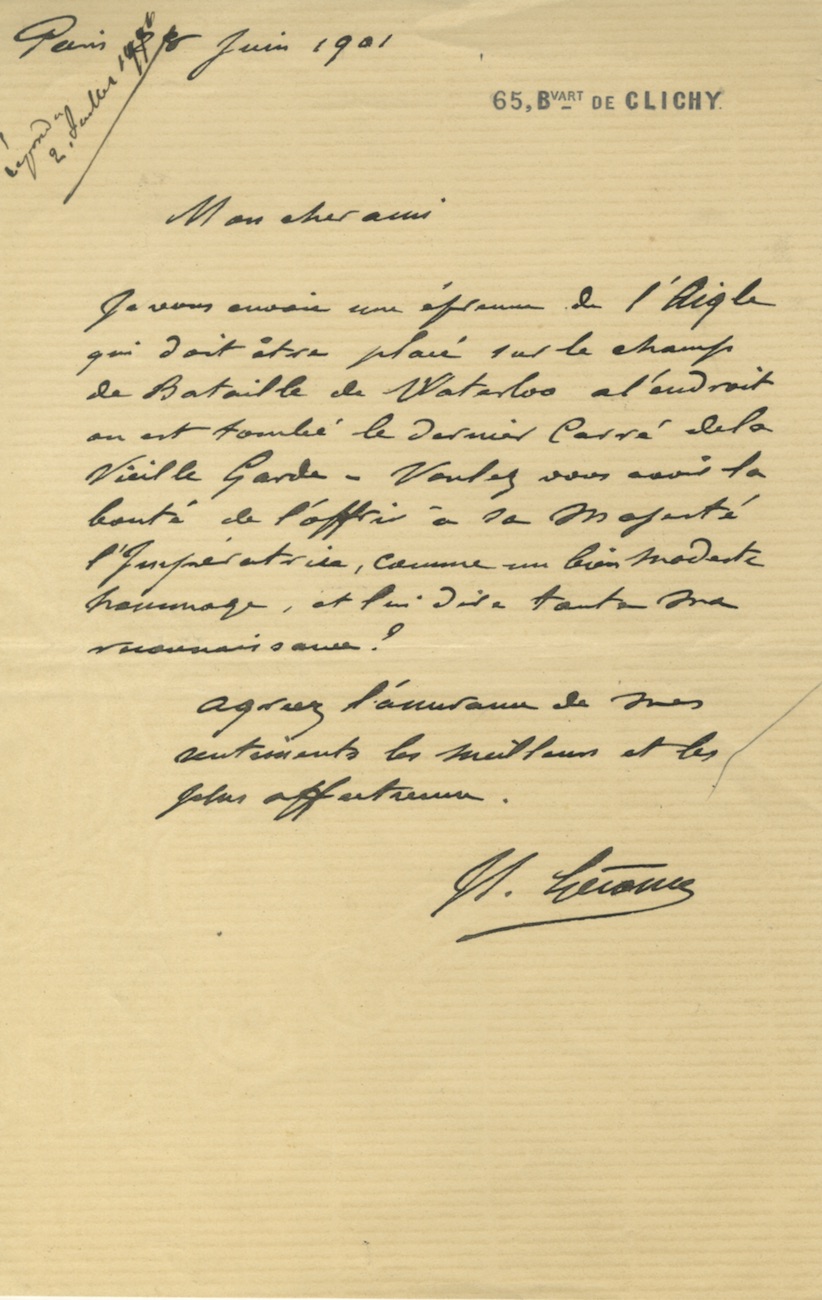 Paris 28 Juin 1901
répondu
2. Juillet 1901
65, BVART DE CLICHY
Mon cher ami
Je vous envoie une épreuve de l'Aigle
qui doit être placé sur le champ
de Bataille de Waterloo a l'endroit
ou est tombé le dernier Carré de la
Vieille Garde – Voulez vous avoir la
bonté de l'offrir a sa Majesté
l'Impératrice, comme un bien modeste
hommage, et lui dire toute ma
reconnaissance ?
agréez l'assurance de mes
sentiments les meilleurs et les
plus affectueux.
Gérome